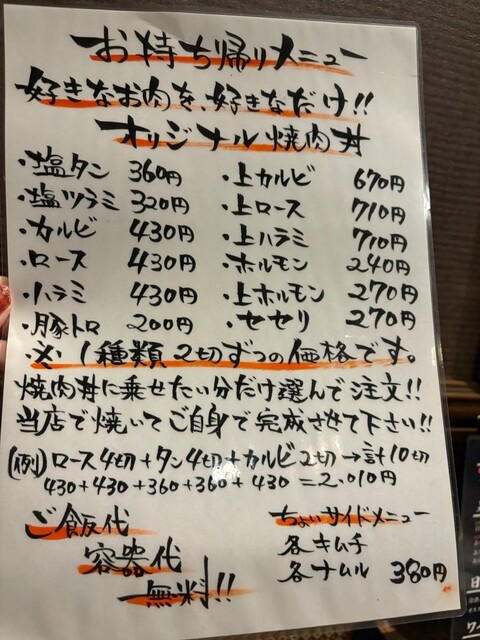 お持ち帰りメニュー
好きなお肉を、好きなだけ!!
オリジナル焼肉丼
・塩タン 360円
・塩ツラミ 320円
・カルビ 430円
・ロース 430円
・ハラミ 430円
・豚トロ 200円
・上カルビ 670円
・上ロース 710円
・上ハラミ 710円
・ホルモン 240円
・上ホルモン 270円
・セセリ 270円
※1種類2切ずつの価格です。
焼肉丼に乗せたい分だけ選んで注文!!
当店で焼いてご自身で完成させて下さい!!
(例)ロース4切+タン4切+カルビ2切→計10切
430+430+360+360+430=2.010円
ご飯代
容器代
無料!!
ちょいサイドメニュー
各キムチ
各ナムル 380円